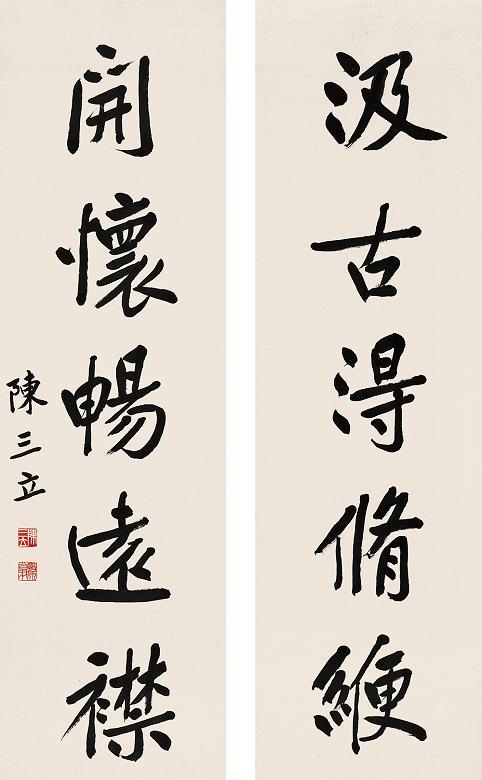 汲古得脩綆
開懷暢遠襟
陳三立